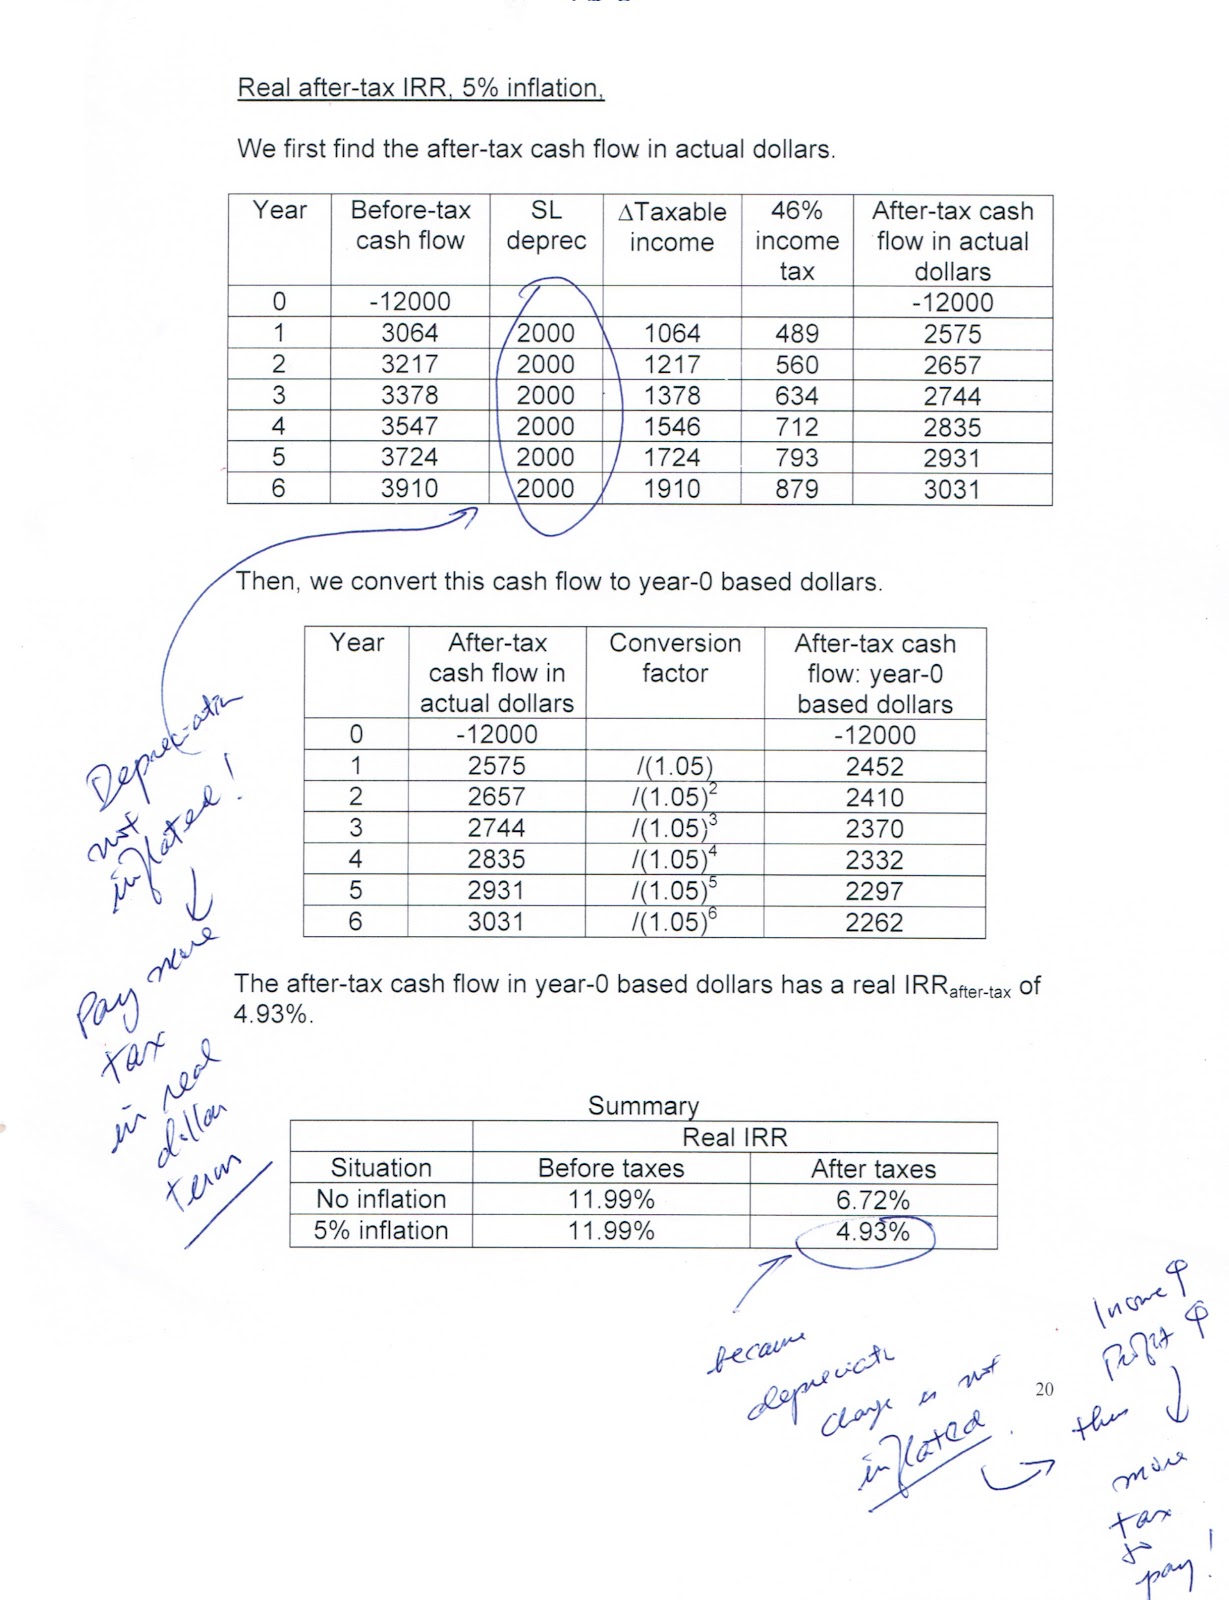 Real after-tax IRR, 5% inflation,
We first find the after-tax cash flow in actual dollars.
Year Before-tax cash flow SL deprec ΔTaxable income 46% income tax After-tax cash flow in actual dollars
0 -12000 -12000
1 3064 2000 1064 489 2575
2 3217 2000 1217 560 2657
3 3378 2000 1378 634 2744
4 3547 2000 1546 712 2835
5 3724 2000 1724 793 2931
6 3910 2000 1910 879 3031
Then, we convert this cash flow to year-0 based dollars.
Year After-tax cash flow in actual dollars Conversion factor After-tax cash flow: year-0 based dollars
0 -12000 -12000
1 2575 /(1.05) 2452
2 2657 /(1.05)² 2410
3 2744 /(1.05)³ 2370
4 2835 /(1.05)⁴ 2332
5 2931 /(1.05)⁵ 2297
6 3031 /(1.05)⁶ 2262
Depreciation
not
inflated!
Pay more
tax
in real
dollar
term
The after-tax cash flow in year-0 based dollars has a real IRRafter-tax of
4.93%.
Summary
Real IRR
Situation Before taxes After taxes
No inflation 11.99% 6.72%
5% inflation 11.99% 4.93%
because
depreciatn
charge is not
inflated.
Income ↑
Profit ↑
thus
more
tax
to
pay!
20